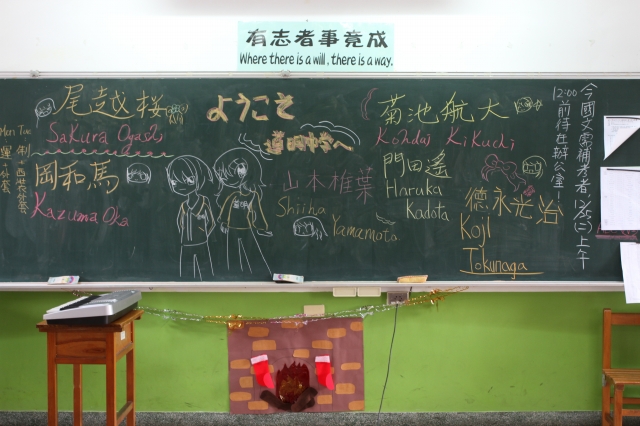 有志者事竟成
Where there is a will, there is a way.
尾越桜
Sakura Ogoshi
岡和馬
Kazuma Oka
ようこそ
道明中学へ
山本椎葉
Shiiha
Yamamoto
菊池航大
Kohdai Kikuchi
門田遥
Haruka
Kadota
德永光治
Koji
Tokunaga
今國文需補考者12/25(二)上午
12:00前待在辦公室
Mon Tue